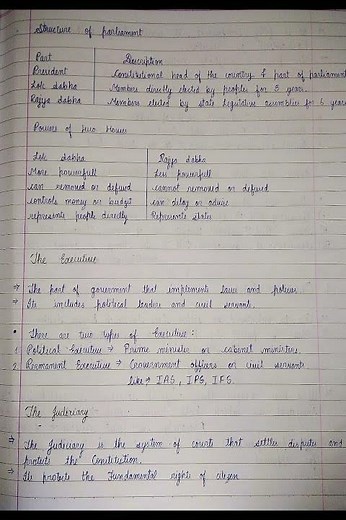 Structure of parliament
Part Description
President Constitutional head of the country & part of parliament
Lok sabha Members directly elected by peoples for 5 years.
Rajya sabha Members elected by state legislative assemblies for 6 years
Powers of two Houses
Lok sabha Rajya sabha
More powerfull Less powerfull
can removed or defund cannot removed or defund
controls money or budget can delay or advice
represents people directly Represents states
The Executive
⇒ The part of government that implements laws and policies
⇒ Its includes political leaders and civil servants.
• There are two types of Executive:
1 Political Executive → Prime minister or cabinet ministers.
2 Permanent Executive → Government officers or civil servants
like → IAS, IPS, IFS.
The Judiciary
⇒ The Judiciary is the system of courts that settles disputes and
protects the Constitution.
⇒ Its protects the Fundamental rights of citizen